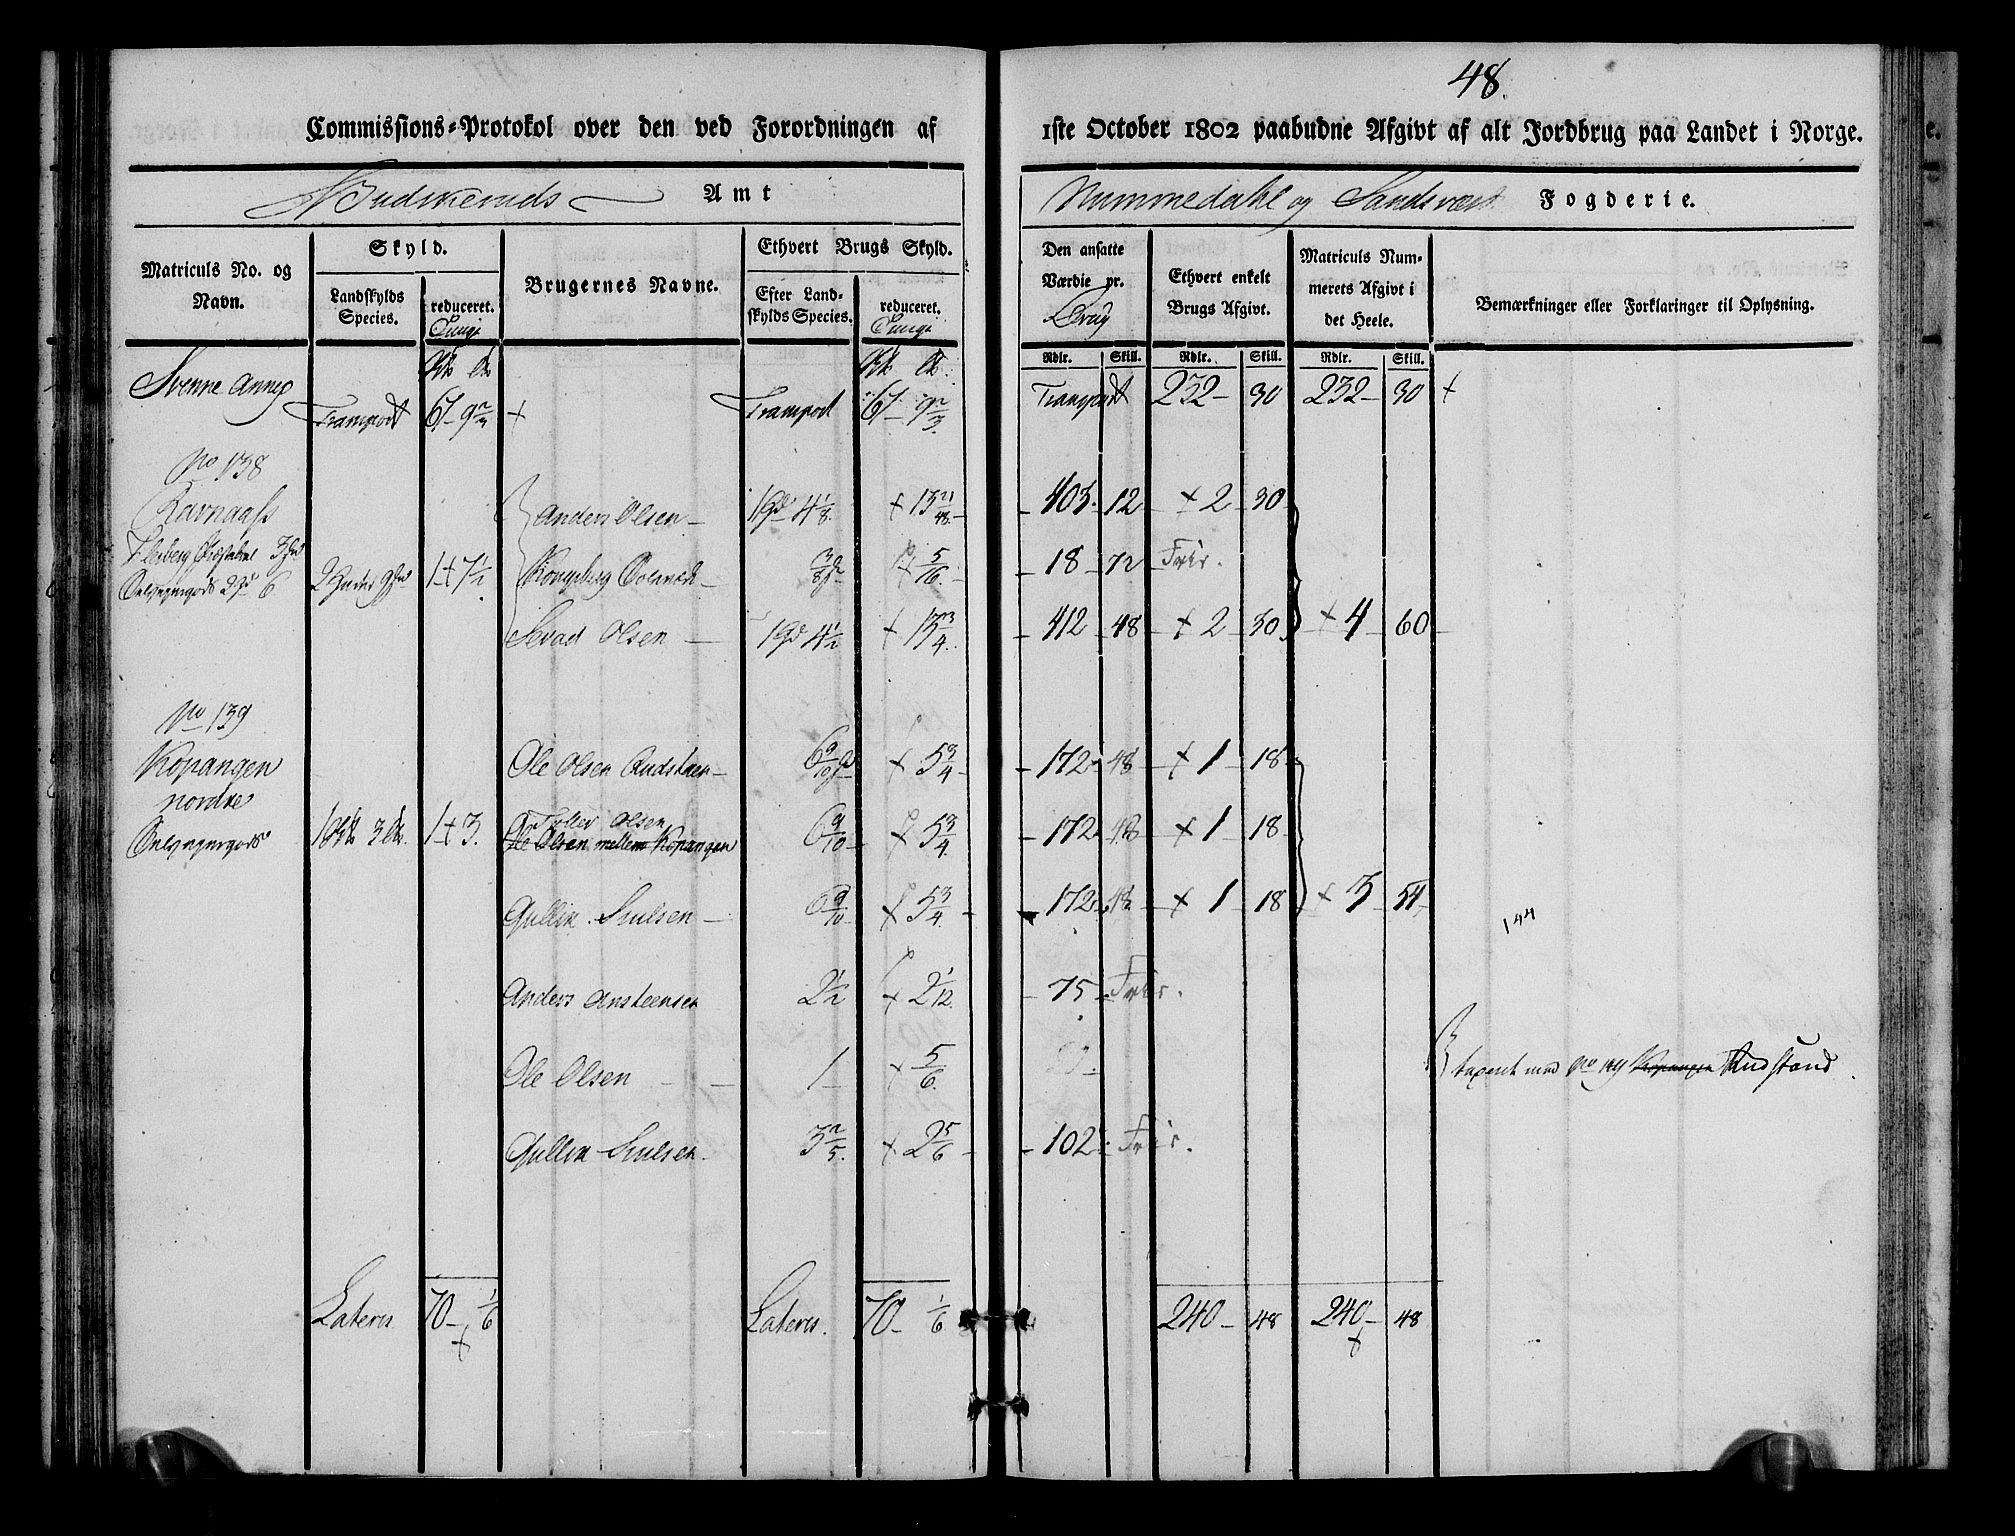 48.
Commissions-Protokol over den ved Forordningen af 1ste October 1802 paabudne Afgivt af alt Jordbrug paa Landet i Norge.
Budskeruds Amt Nummedahl og Sandsværd Fogderie.
Matriculs No. og Navn.
Skyld.
Landskylds Species.
reduceret. Tunge
Brugernes Navne.
Ethvert Brugs Skyld.
Efter Landskylds Species.
reduceret. Tunge
Den ansatte Værdie pr. Brug
Ethvert enkelt Brugs Afgivt.
Matriculs Nummerets Afgivt i det Heele.
Bemærkninger eller Forklaringer til Oplysning.
Rdlr. Skill. Rdlr. Skill. Rdlr. Skill.
Svenne Annex
Transport 67 - 9 2/3 + Transport 67 - 9 2/3 Transport 232 - 30 232 - 30 +
No 138
Ravnaass
Anders Olsen - 4 1/8 + 13 21/48 - 403 - 12 + 2 30
Flesberg 3
2 6 1 + 7 1/2 Kongsberg 3/8 5/16 - 18 - 72 Frie.
Olsen - 4 1/2 + 13 3/4 - 412 - 48 + 2 - 30 + 4 60
No 139
Kopangen
nordre
Ole Olsen Rudstuen - 6 9/10 + 5 3/4 - 172 - 48 + 1 18
1 3 1 + 3. Toller Olsen
Ole Olsen mellem Kopangen 6 9/10 + 5 3/4 - 172 - 48 + 1 18
Gullik Siulsen - 6 9/10 + 5 3/4 - 172 - 48 + 1 18 + 3 54
144
Anders Ansteensen 2 1/2 + 2 1/12 - 75 - Frie.
Ole Olsen - - 1 - + 5/6
taxeret med No Kopangen Rudstand.
Gullik Siulsen. 3 2/5 + 2 5/6 - 102 - Frie.
Lateres 70 - 1/6 + Lateres. 70 - 1/6 240 - 48 240 - 48 +